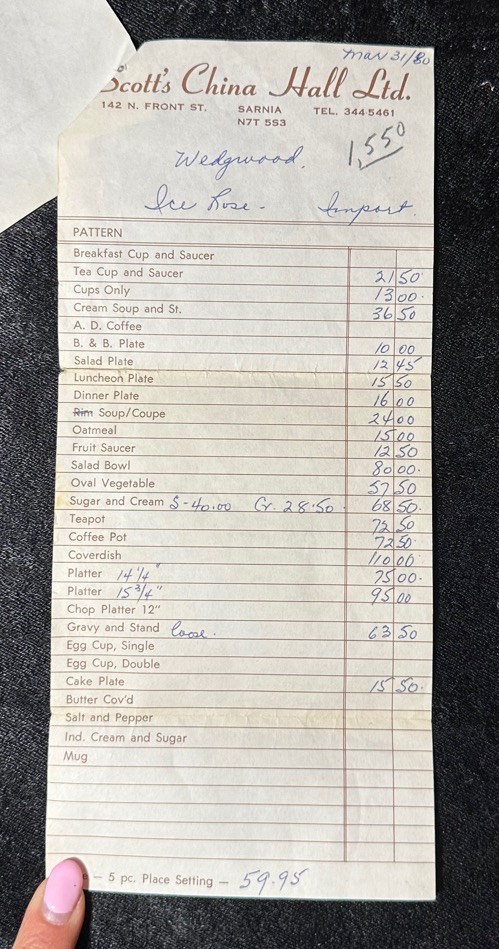 Mar 31/80
Scott's China Hall Ltd.
142 N. FRONT ST. SARNIA TEL. 344-5461
N7T 5S3
1,550
Wedgwood.
Ice Rose. Import.
PATTERN
Breakfast Cup and Saucer
Tea Cup and Saucer 21 50
Cups Only 13 00
Cream Soup and St. 36 50
A. D. Coffee
B. & B. Plate 10 00
Salad Plate 12 45
Luncheon Plate 15 50
Dinner Plate 16 00
Rim Soup/Coupe 24 00
Oatmeal 15 00
Fruit Saucer 12 50
Salad Bowl 80 00
Oval Vegetable 57 50
Sugar and Cream S-40.00 Cr. 28.50 68 50
Teapot 72 50
Coffee Pot 72 50
Coverdish 110 00
Platter 14 1/4" 75 00
Platter 15 3/4" 95 00
Chop Platter 12"
Gravy and Stand loose. 63 50
Egg Cup, Single
Egg Cup, Double
Cake Plate 15 50
Butter Cov'd
Salt and Pepper
Ind. Cream and Sugar
Mug
— 5 pc. Place Setting — 59.95